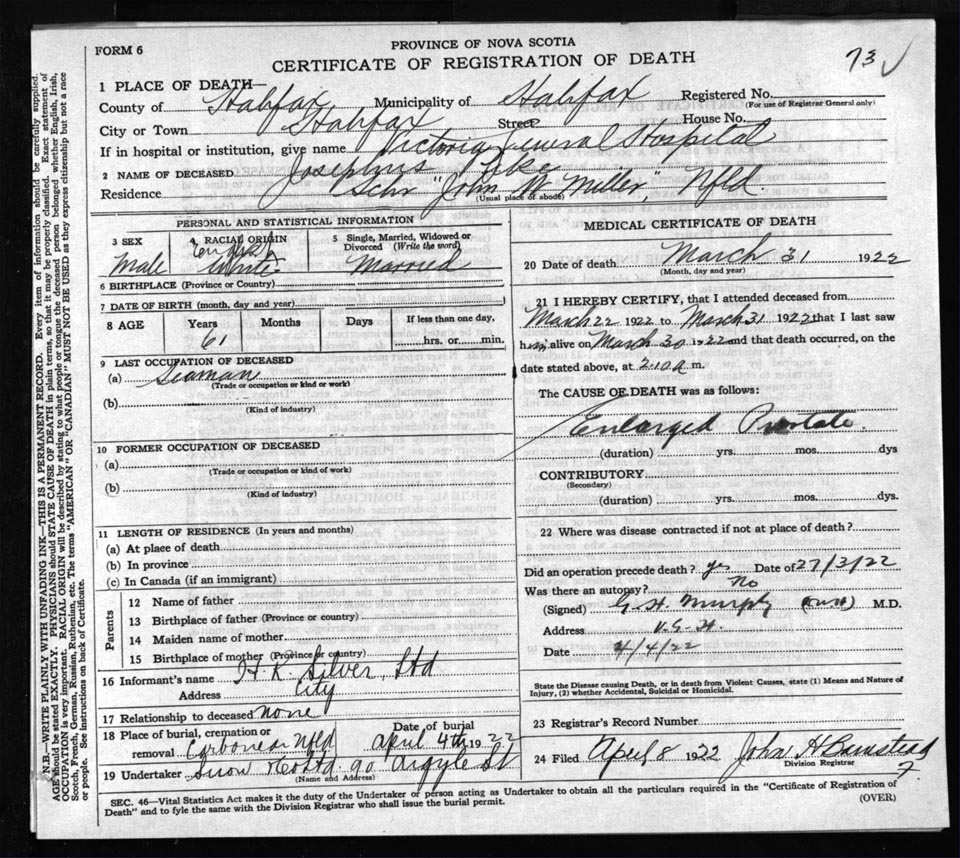 FORM 6
PROVINCE OF NOVA SCOTIA
CERTIFICATE OF REGISTRATION OF DEATH
73
N.B.—WRITE PLAINLY WITH UNFADING INK—THIS IS A PERMANENT RECORD. Every item of information should be carefully supplied.
AGE should be stated EXACTLY. PHYSICIANS should STATE CAUSE OF DEATH in plain terms, so that it may be properly classified. Exact statement of
OCCUPATION is very important. RACIAL ORIGIN will be described by stating to what people or tongue the deceased person belonged whether English, Irish,
Scotch, French, German, Russian, Ruthenian, etc. The terms "AMERICAN" OR "CANADIAN" MUST NOT BE USED as they express citizenship but not a race
or people. See instructions on back of Certificate.
1 PLACE OF DEATH—
County of Halifax Municipality of Halifax Registered No.
(For use of Registrar General only)
City or Town Halifax Street House No.
If in hospital or institution, give name Victoria General Hospital
2 NAME OF DECEASED Josephus Pike
Residence Schr "John W Miller", Nfld
(Usual place of abode)
PERSONAL AND STATISTICAL INFORMATION
3 SEX Male
4 RACIAL ORIGIN English White
5 Single, Married, Widowed or Divorced (Write the word) Married
6 BIRTHPLACE (Province or Country)
7 DATE OF BIRTH (month, day and year)
8 AGE Years Months Days If less than one day,
61 hrs. or min.
9 LAST OCCUPATION OF DECEASED
(a) Seaman
(Trade or occupation or kind or work)
(b)
(Kind of industry)
10 FORMER OCCUPATION OF DECEASED
(a)
(Trade or occupation or kind of work)
(b)
(Kind of industry)
11 LENGTH OF RESIDENCE (In years and months)
(a) At place of death
(b) In province
(c) In Canada (if an immigrant)
Parents
12 Name of father
13 Birthplace of father (Province or country)
14 Maiden name of mother
15 Birthplace of mother (Province or country)
16 Informant's name H. R. Silver, Ltd
Address City
17 Relationship to deceased None
18 Place of burial, cremation or Date of burial
removal Carbonear Nfld April 4th 1922
19 Undertaker Snow & Co Ltd. 90 Argyle St
(Name and Address)
MEDICAL CERTIFICATE OF DEATH
20 Date of death March 31 1922
(Month, day and year)
21 I HEREBY CERTIFY, that I attended deceased from
March 22 1922 to March 31 1922 that I last saw
him alive on March 30 1922 and that death occurred, on the
date stated above, at 2.10 a m.
The CAUSE OF DEATH was as follows:
Enlarged Prostate
(duration) yrs. mos. dys
CONTRIBUTORY
(Secondary)
(duration) yrs. mos. dys.
22 Where was disease contracted if not at place of death?
Did an operation precede death? yes Date of 27/3/22
Was there an autopsy? No
(Signed) G. H. Murphy M.D.
Address V.G.H.
Date 4/4/22
State the Disease causing Death, or in death from Violent Causes, state (1) Means and Nature of
Injury, (2) whether Accidental, Suicidal or Homicidal.
23 Registrar's Record Number
24 Filed April 8 1922 John H Barnstead
Division Registrar
7
SEC. 46—Vital Statistics Act makes it the duty of the Undertaker or person acting as Undertaker to obtain all the particulars required in the "Certificate of Registration of
Death" and to fyle the same with the Division Registrar who shall issue the burial permit.
(OVER)